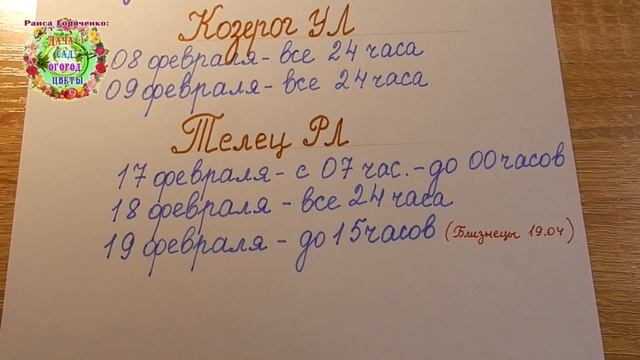 Раиса Горяченко:
ДАЧА
САД
ОГОРОД
ЦВЕТЫ
Козерог УЛ
08 февраля - все 24 часа
09 февраля - все 24 часа
Телец РЛ
17 февраля - с 07 час. - до 00 часов
18 февраля - все 24 часа
19 февраля - до 15 часов (Близнецы 19.04)